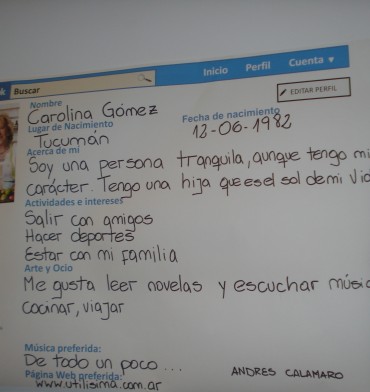 k Buscar
Inicio Perfil Cuenta
EDITAR PERFIL
Nombre
Carolina Gómez
Fecha de nacimiento
12-06-1982
Lugar de Nacimiento
Tucumán
Acerca de mi
Soy una persona tranquila, aunque tengo mi
carácter. Tengo una hija que es el sol de mi vid
Actividades e intereses
Salir con amigos
Hacer deportes
Estar con mi familia
Arte y Ocio
Me gusta leer novelas y escuchar músic
cocinar, viajar
Música preferida:
De todo un poco...
ANDRES CALAMARO
Página Web preferida:
www.utilisima.com.ar